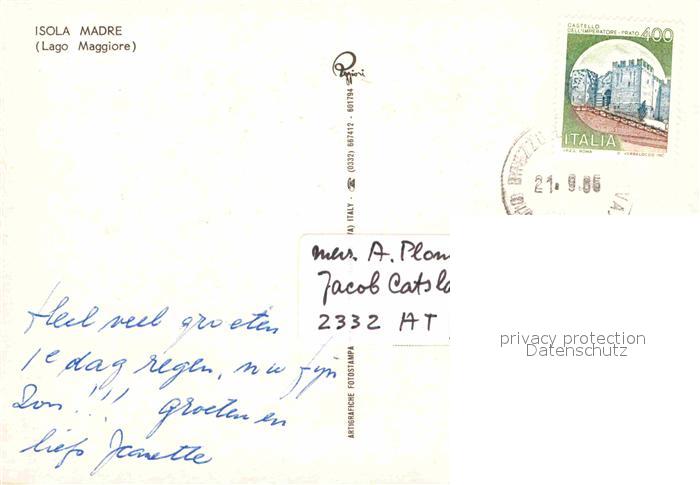 ISOLA MADRE
(Lago Maggiore)
CASTELLO
DELL'IMPERATORE - PRATO
400
ITALIA
I.P.Z.S. ROMA
21. 9.86
ARTIGRAFICHE FOTOSTAMPA
(VA) ITALY - (0332) 667412 - 601794
mevr. A. Plom
Jacob Catsla
2332 AT
privacy protection
Datenschutz
Heel veel groeten
1e dag regen, nu fijn
Zon!!! groeten en
liefs Jeanette